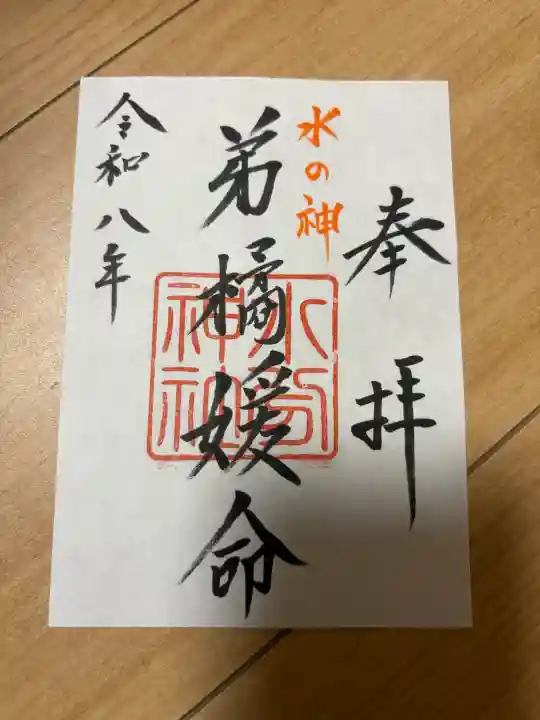 奉拝
水の神
弟橘媛命
令和八年